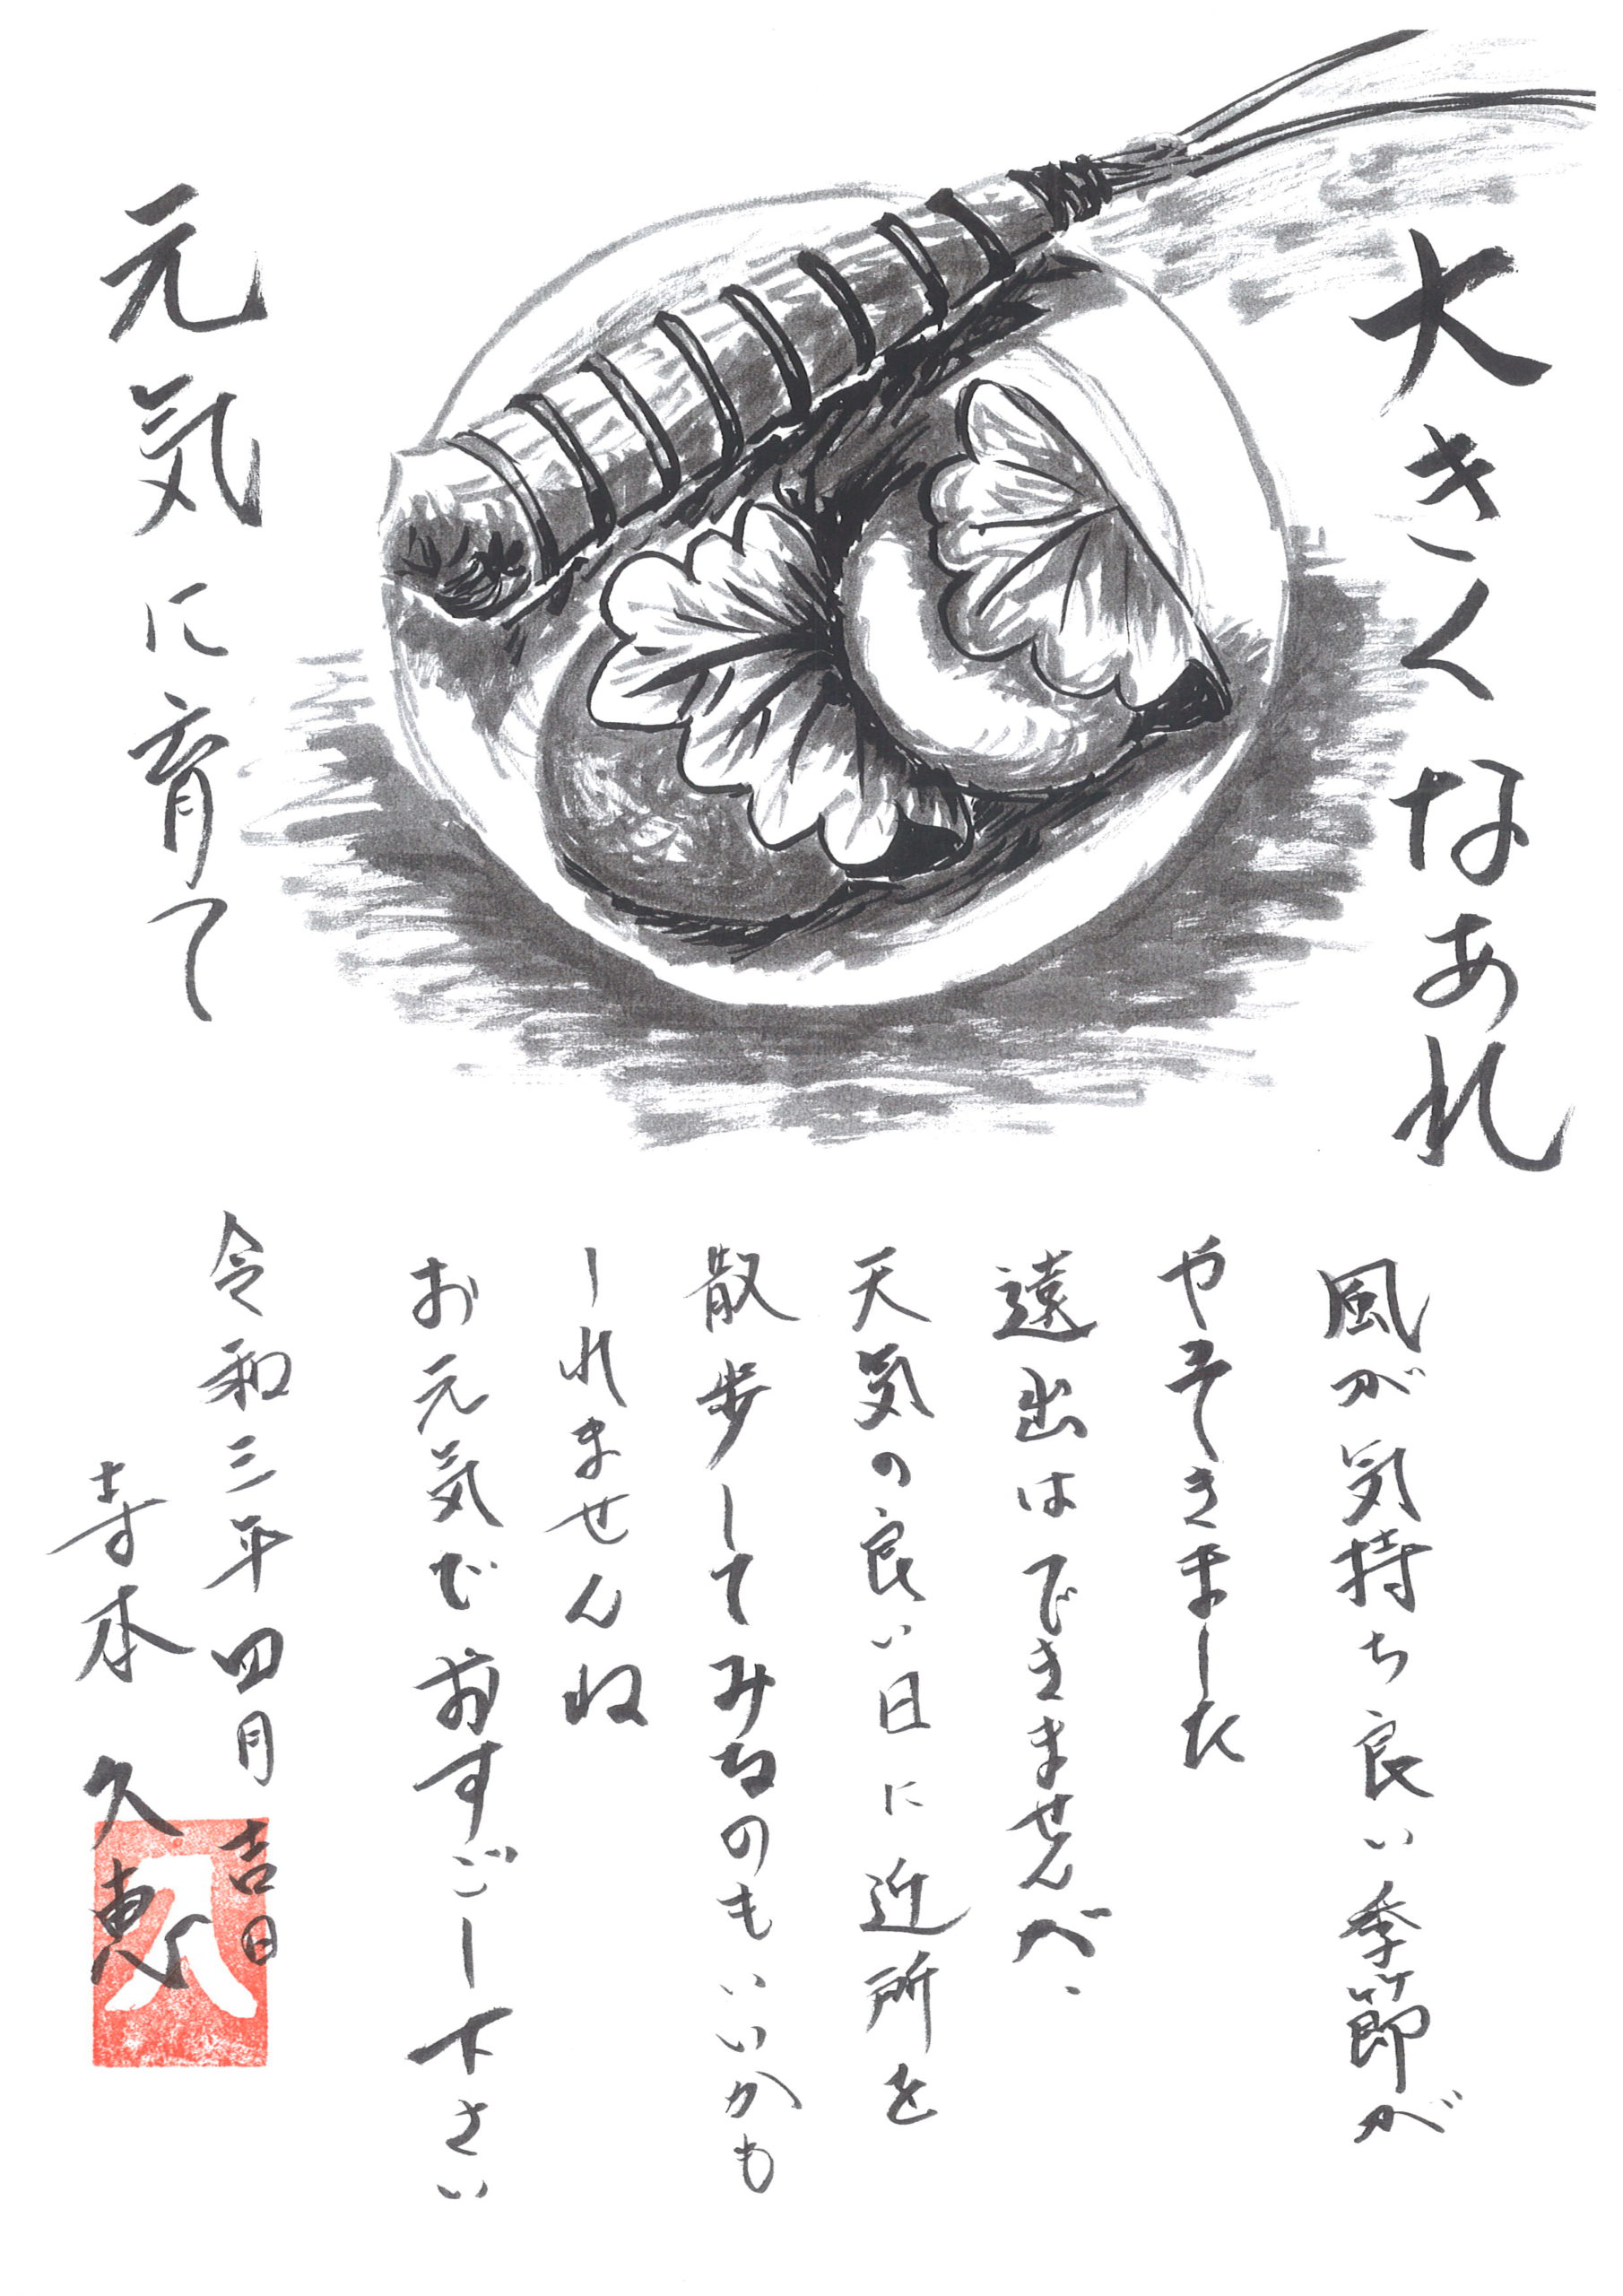 大きくなあれ
元気に育て
風が気持ち良い季節が
やってきました
遠出はできませんが、
天気の良い日に近所を
散歩してみるのもいいかも
しれませんね
お元気でおすごし下さい
令和三年四月吉日
寺本 久恵
久